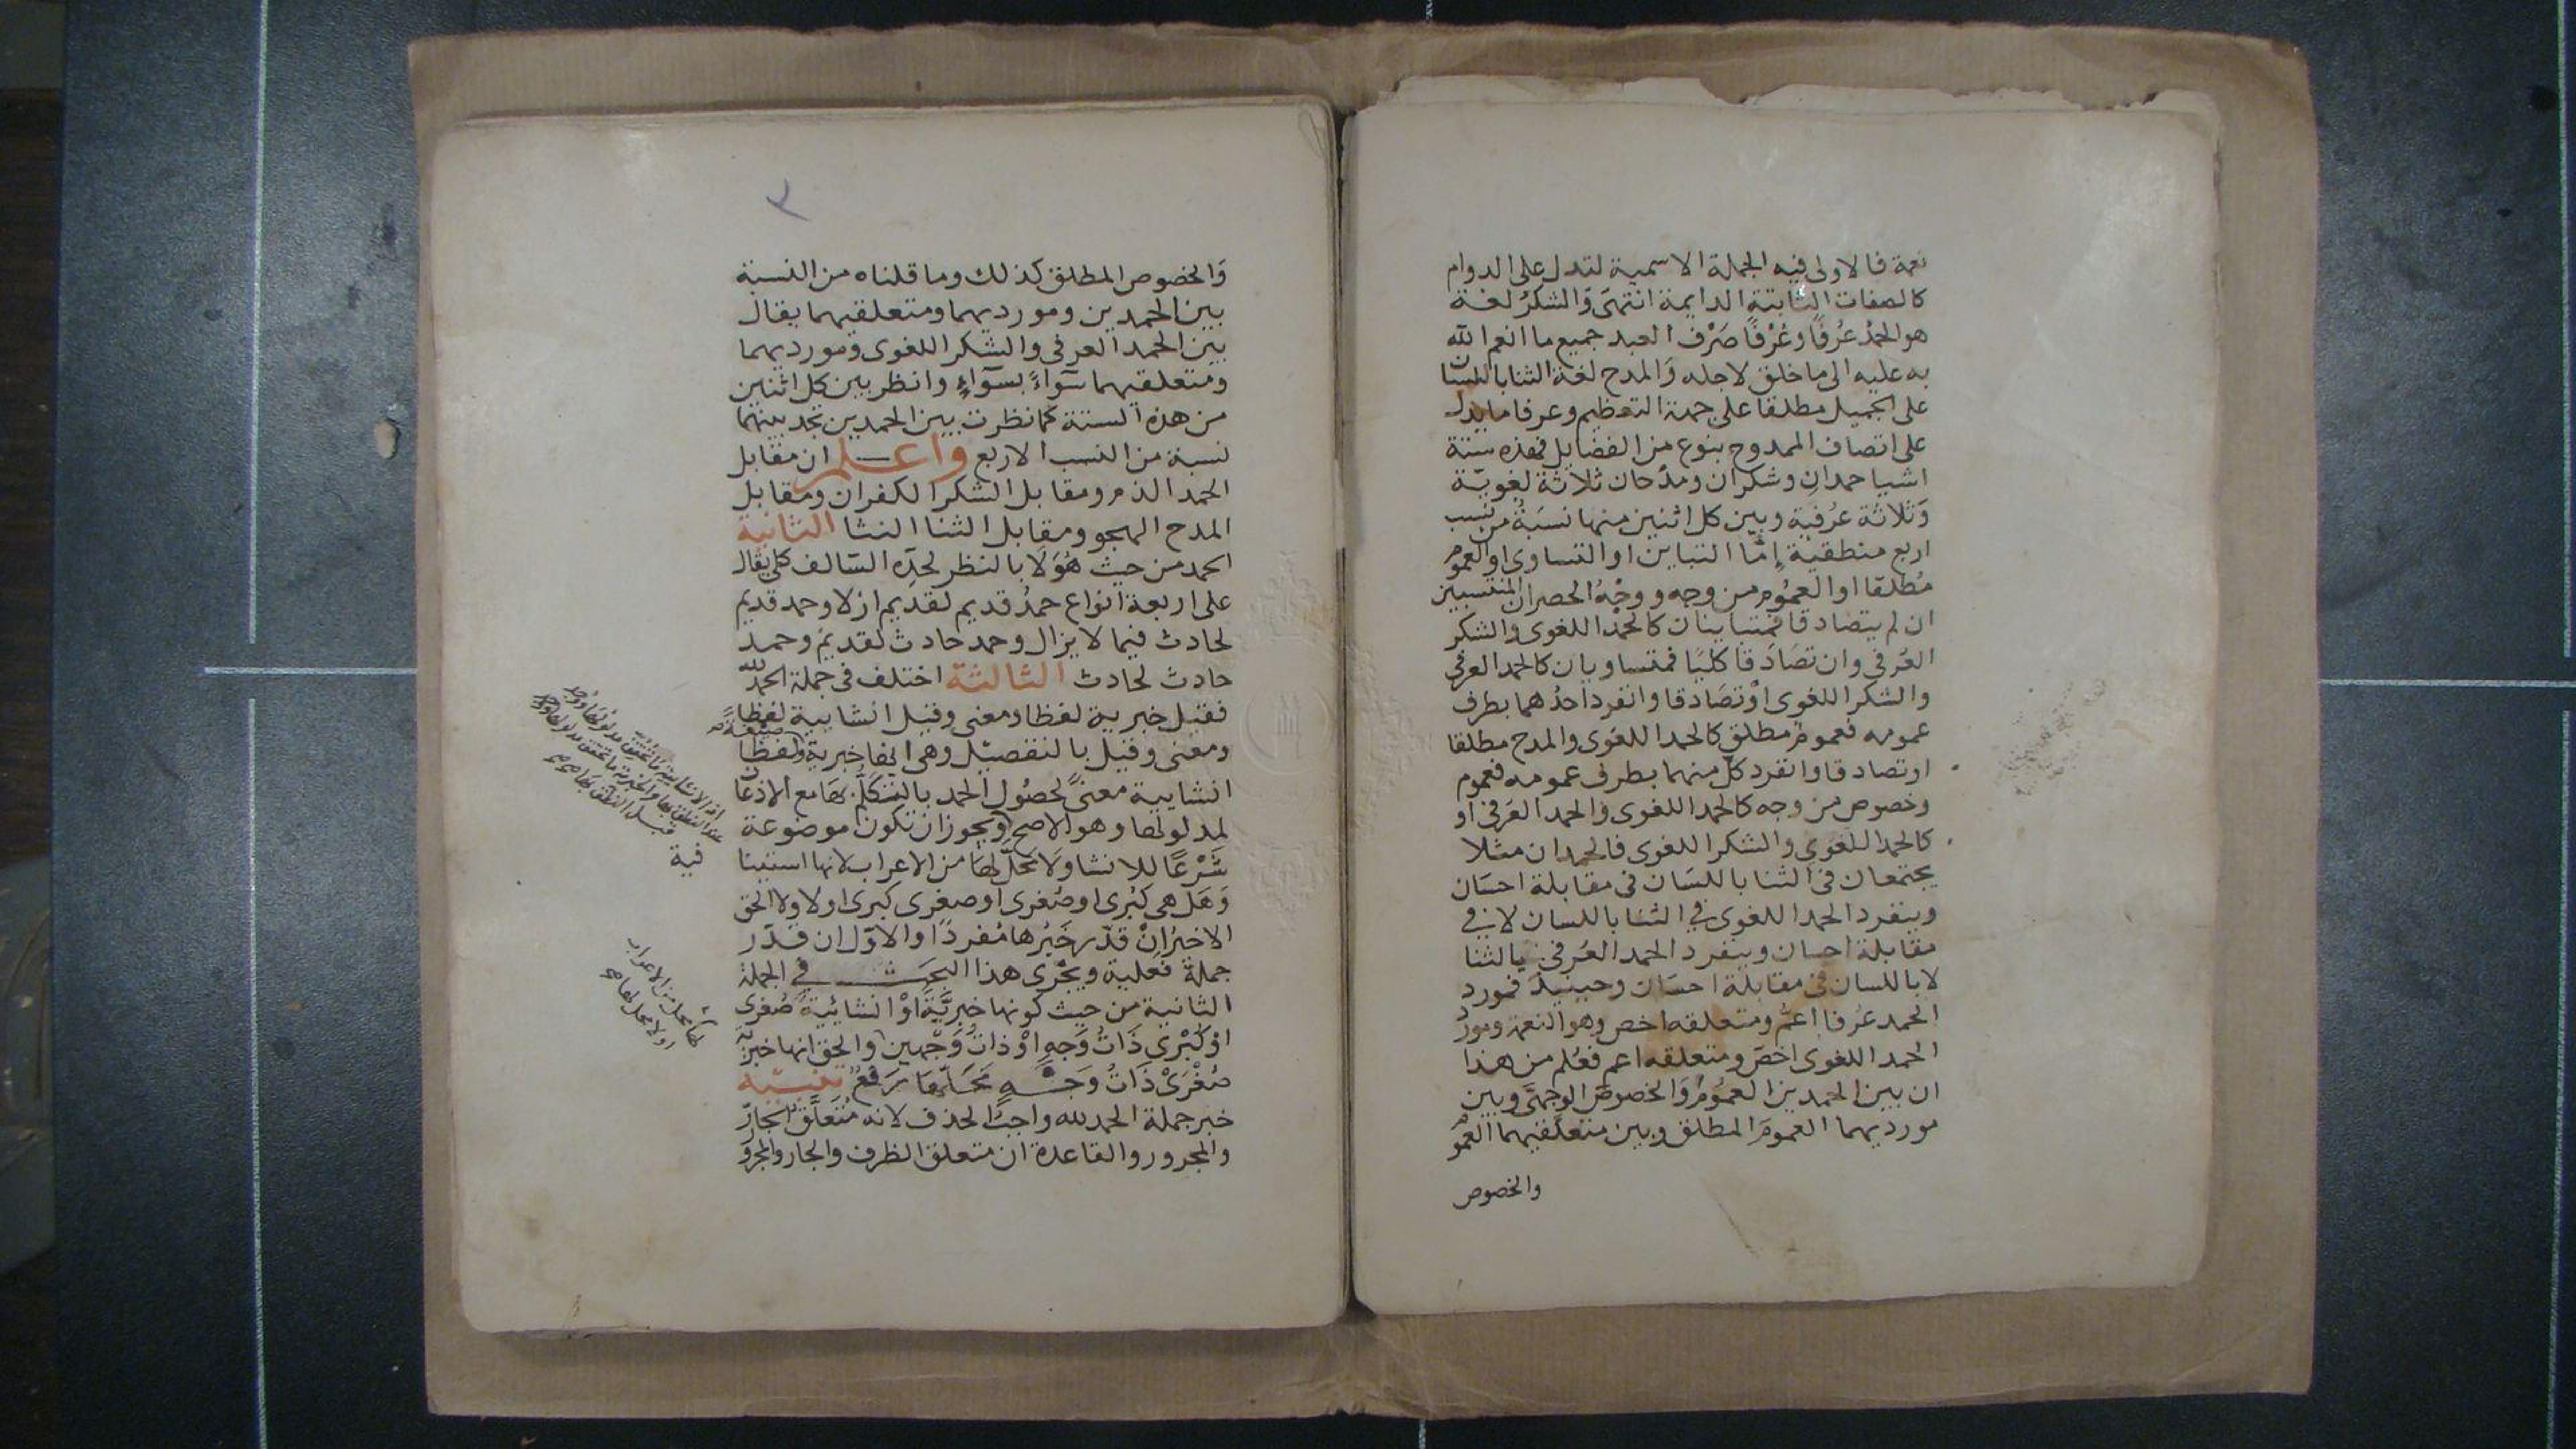 نعمة فالاولى فيه الجملة الاسمية لتدل على الدوام
كالصفات الثابتة الدايمة انتهى والشكر لغة
هو الحمد عُرفًا وعُرْفًا صَرْف العبد جميع ما انعم الله
به عليه الى ما خلق لاجله والمدح لغة الثنا باللسان
على الجميل مطلقا على جهة التعظيم وعرفا ما يدل
على اتصاف الممدوح بنوع من الفضايل فهذه ستة
اشيا حمدان وشكران ومدحان ثلاثة لغوية
وَثلاثة عُرفية وبين كل اثنين منها نسبَةٌ من نسب
اربع منطقية إمّا التباين او التساوى او العموم
مُطلقا او العمُوم من وجه ووجْهُ الحصر ان المنتسبين
ان لم يتصادقا فمتباينان كالحمد اللغوى والشكر
العُرفي وان تصَادَقا كليًا فمتساويان كالحمد العرفي
والشكر اللغوى اوْ تصَادقا وانفرد احدُهما بطرف
عمومه فعموم مطلق كالحمد اللغوى والمدح مطلقا
او تصادقا وانفرد كلّ منهما بطرف عمومه فعموم
وخصوص من وجه كالحمد اللغوى والحمد العرفي او
كالحمد اللغوي والشكر اللغوى فالحمدان مثلا
يجتمعان في الثنا باللسَان في مقابلة احسَان
وينفرد الحمد اللغوى في الثنا باللسان لا في
مقابلة احسان وينفرد الحمد العُرفي بالثنا
لا باللسان في مقابلة احسَان وحينيذ فمورد
الحمد عُرفا اعمّ ومتعلقه اخص وهو النعمة ومورد
الحمد اللغوى اخصّ ومتعلقه اعم فعُلم من هذا
ان بين الحمدين العمُومُ وَالخصوصَ الوجهىَّ وبين
مورديهما العمومَ المطلق وبين متعلقيهما العموم
والخصوص
٣
وَالخصوص المطلق كذلك وما قلناه من النسبة
بين الحمدين ومورديهما ومتعلقيهما يقال
بين الحمد العرفى والشكر اللغوى ومورديهما
ومتعلقيهما سَوآءً بسَوآءٍ وانظر بين كل اثنين
من هذه الستة كما نظرت بين الحمدين تجد بينهما
نسبة من النسب الاربع واعلم ان مقابل
الحمد الذم ومقابل الشكر الكفران ومقابل
المدح الهجو ومقابل الثنا النثا الثانية
الحمد من حيث هُوَ لَا بالنظر لحدِّه السَالف كلى يقال
على اربعة انواع حمدُ قديم لقديم ازلا وحمد قديم
لحادث فيما لا يزال وحمد حادث لقديم وحمد
حادث لحادث الثالثة اختلف في جملة الحمد لله
فقيل خبرية لفظا ومعنى وقيل انشايية لفظا
ومعنى وقيل بالتفصيل وهى انها خبرية لفظًا صيغة
انشايية معنىً لحصُول الحمد بالتكلّم بها مع الاذعان
لمدلولها وهو الاصح ويجوز ان تكون موضوعة
شَرْعًا للانشا ولَا محلّ لها من الاعراب لانها استينا
فية
وَهَل هى كبْرى او صُغرى او صغرى كبرى او لا ولا الحق
الاخيرُ انْ قدّر خَبَرُها مُفردًا والاوّل ان قدّر
جملة فعلية ويجْرى هذا البحث في الجملة
الثانية من حيث كونها خبريَّةَ اوْ انشائيةً صُغرى
اوْ كُبْرى ذَاتُ وَجهٍ اوْ ذات وَجْهين والحق انها خبريّة
صُغْرَىْ ذَاتُ وَجْهٍ مَحَلّها رَفعٌ تنبيه
خبر جملة الحمد لله واجبُ الحذف لانه مُتَعلّق الجارّ
والمجرور والقاعدة ان متعلق الظرف والجار والمجرو
لها محل من الاعراب
او لا محل لها